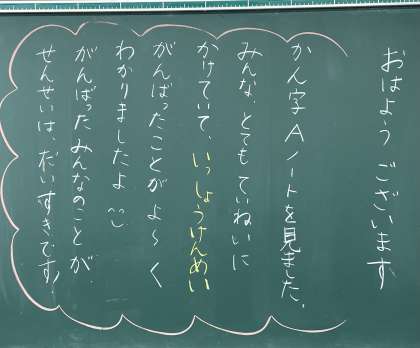 おはよう ございます
かん字Aノートを見ました。
みんな、とてもていねいに
かけていて、いっしょうけんめい
がんばったことがよ〜く
わかりましたよ
がんばったみんなのことが、
せんせいは、だいすきです!